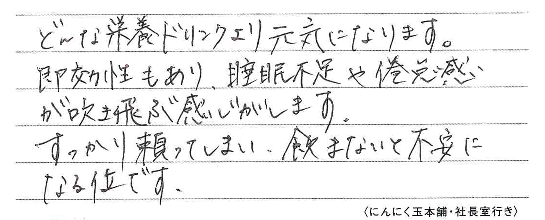 どんな栄養ドリンクより元気になります。
即効性もあり、睡眠不足や倦怠感
が吹き飛ぶ感じがします。
すっかり頼ってしまい、飲まないと不安に
なる位です。
（にんにく玉本舗・社長室行き）